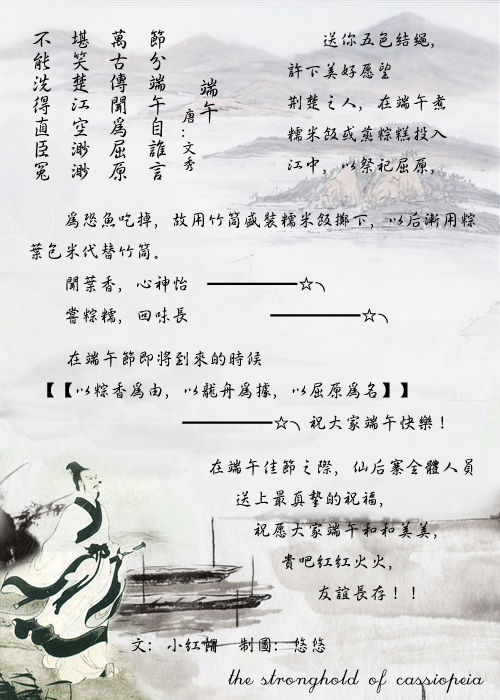 端午
唐：文秀
節分端午自誰言
萬古傳聞爲屈原
堪笑楚江空渺渺
不能洗得直臣冤
送你五色結繩，
許下美好愿望
荆楚之人，在端午煮
糯米飯或蒸粽糕投入
江中，以祭祀屈原，
爲恐魚吃掉，故用竹筒盛裝糯米飯擲下，以后漸用粽
葉包米代替竹筒。
聞葉香，心神怡 ━━━━━━☆╮
嘗粽糯，回味長 ━━━━━━☆╮
在端午節即將到來的時候
【【以粽香爲由，以龍舟爲據，以屈原爲名】】
━━━━━━☆╮祝大家端午快樂！
在端午佳節之際，仙后寨全體人員
送上最真摯的祝福，
祝愿大家端午和和美美，
貴吧紅紅火火，
友誼長存！！
文：小红帽 制圖：悠悠
the stronghold of cassiopeia